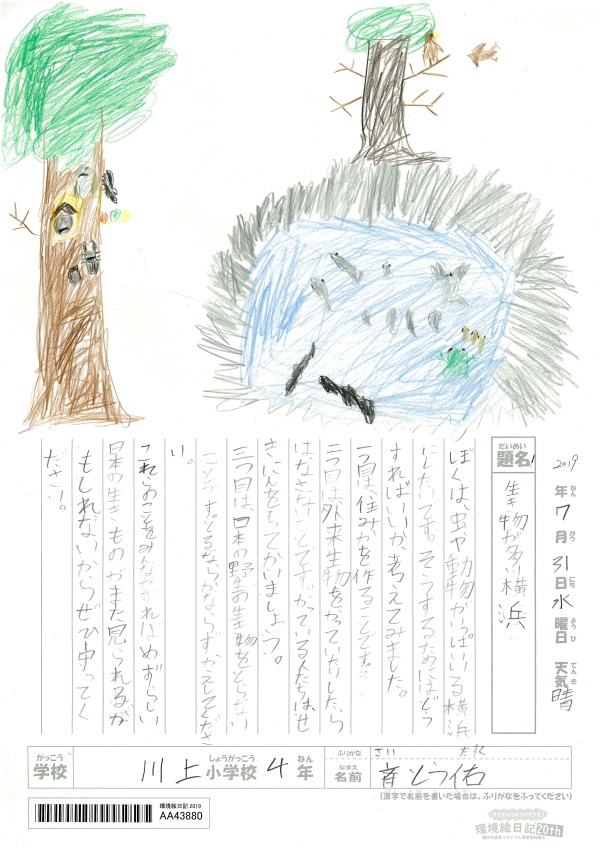 2019年7月31日水曜日 天気晴
ねん がつ にち ようび てんき
だいめい
題名
生き物が多い横浜
ぼくは、虫や動物がいっぱいいる横浜
にしたいです。そうするためにはどう
すればいいか、考えてみました。
一つ目は、住みかを作ることです。
二つ目は、外来生物をかっていたりしたら
はなさないことです。かっている人たちは、せ
きにんをもってかいましょう。
三つ目は、日本の野生の生き物をとらない
ことです。とるならかならずかえしてくださ
い。
これらのことをみんながすればめずらしい
日本の生きものがまた見られるが
もしれないからぜひ守ってく
ださい。
がっこう
学校
川上小学校4年
しょうがっこう ねん
ふりがな
さい
なまえ
名前
佑
(漢字で名前を書いた場合は、ふりがなをふってください)
環境絵日記 2019
AA43880
環境絵日記20th